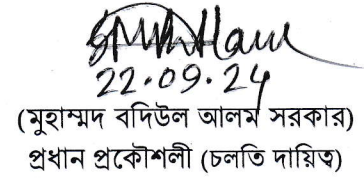 22.09.24
(মুহাম্মদ বদিউল আলম সরকার)
প্রধান প্রকৌশলী (চলতি দায়িত্ব)